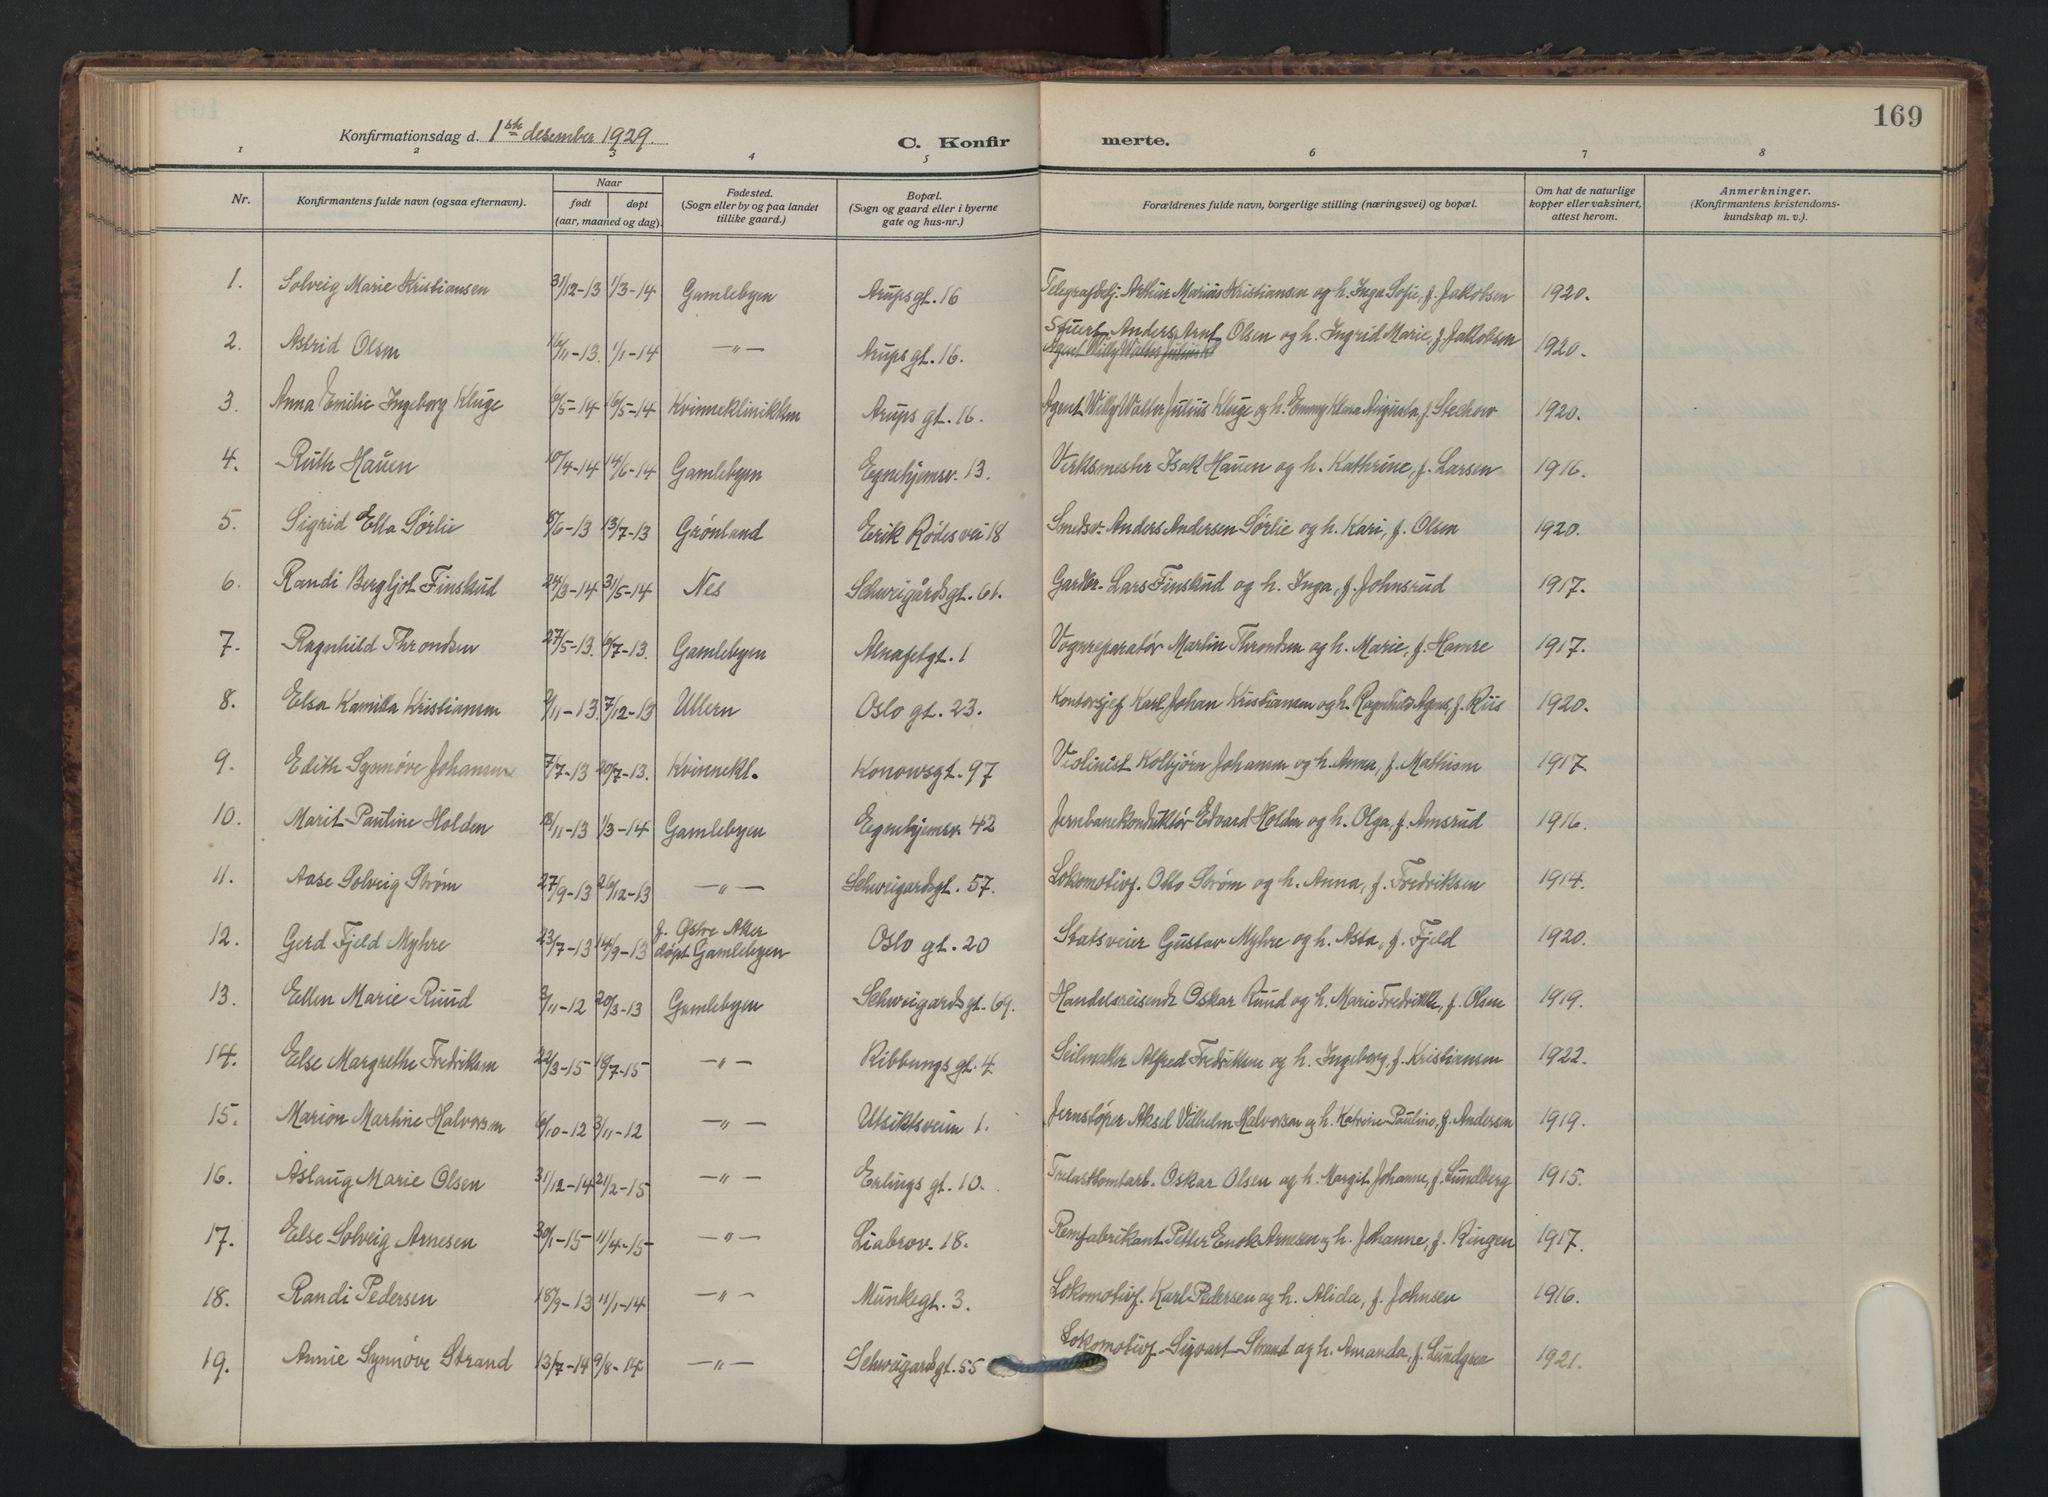 169
Konfirmationsdag d. 1ste desember 1929.
C. Konfirmerte.
1 2 3 4 5 6 7 8
Nr. Konfirmantens fulde navn (ogsaa efternavn). Naar født døpt (aar, maaned og dag). Fødested. (Sogn eller by og paa landet tillike gaard.) Bopæl. (Sogn og gaard eller i byerne gate og hus-nr.) Forældrenes fulde navn, borgerlige stilling (næringsvei) og bopæl. Om hat de naturlige kopper eller vaksinert, attest herom. Anmerkninger. (Konfirmantens kristendoms-kundskap m. v.)
1. Solveig Marie Kristiansen 31/12-13 1/3-14 Gamlebyen Arupsgt. 16 Telegrafbetj. Arthur Marius Kristiansen og h. Inga Sofie, f. Jakobsen 1920.
2. Astrid Olsen 16/11-13. 1/1-14 —"— Arups gt. 16. Stuert Anders Arnt Olsen og h. Ingrid Marie, f. Jakobsen 1920.
Agent Willy Walter Julius
3. Anna Emilie Ingeborg Kluge 6/5-14 16/5-14 Kvinneklinikken Arups gt. 16. Agent Willy Walter Julius Kluge og h. Emmy Klara Augusta, f. Stechow 1920.
4. Ruth Hauen 10/4-14 14/6-14 Gamlebyen Egnehjemsv. 13. Verksmester Isak Hauen og h. Kathrine, f. Larsen 1916.
5. Sigrid Elta Sørlie /6-13 13/7-13 Grönland Erik Rødes vei 18 Smedsv. Anders Andersen Sørlie og h. Kari, f. Olsen 1920.
6. Randi Bergljot Finskud 24/3-14 31/5-14 Nes Schweigårdsgt. 61. Gardbr. Lars Finskud og h. Inga, f. Johnsrud 1917.
7. Ragnhild Throndsen 27/5-13. 6/7-13. Gamlebyen Alnafetgt. 1 Vognreparatör Martin Throndsen og h. Marie, f. Hamre 1917.
8. Elsa Kamilla Kristiansen /11-13 7/12-13 Ullern Oslo gt. 23. Kontorsjef Karl Johan Kristiansen og h. Ragnhild Agnes, f. Riis 1920.
9. Edith Synnøve Johansen 7/7-13 20/7-13. Kvinnekl. Konowsgt. 97 Violinist Kolbjörn Johansen og h. Anna, f. Mathisen 1917.
10. Marit Pauline Holden 13/11-13 1/3-14 Gamlebyen Egnehjemsv. 42 Jernbanekonduktör Edvard Holden og h. Olga, f. Amsrud 1916.
11. Aase Solveig Strøm 27/9-13 26/12-13 —"— Schweigardsgt. 57. Lokomotivf. Otto Strøm og h. Anna, f. Fredriksen 1914.
12. Gerd Fjeld Myhre 23/7-13 14/9-13 f. Østre Aker døpt Gamlebyen Oslo gt. 20 Statsveier Gustav Myhre og h. Asta, f. Fjeld 1920.
13. Ellen Marie Ruud /11-12 20/3-13 Gamlebyen Schweigards gt. 69. Handelsreisende Oskar Ruud og h. Marie Fredrikke, f. Olsen 1919.
14. Else Margrethe Fredriksen 22/3-15 18/7-15 —"— Ribbungs gt. 4 Seilmaker Alfred Fredriksen og h. Ingeborg, f. Kristiansen 1922.
15. Marion Martine Halvorsen 6/10-12 3/11-12 —"— Utsiktsveien 1. Jernstöper Aksel Vilhelm Halvorsen og h. Katrine Pauline, f. Andersen 1919.
16. Aslaug Marie Olsen 31/12-14 21/2-15 —"— Erlings gt. 10. Trelasttomtarb. Oskar Olsen og h. Margit Johanne, f. Lundberg 1915.
17. Else Solveig Arnesen 30/1-15 11/4-15 —"— Liabrov. 18. Remfabrikant Petter Enok Arnesen og h. Johanne, f. Ringen 1917.
18. Randi Pedersen 18/9-13 11/1-14 —"— Munkegt. 3. Lokomotivf. Karl Pedersen og h. Alida, f. Johnsen 1916.
19. Annie Synnöve Strand 13/7-14 9/8-14 —"— Schweigardsgt. 55 Lokomotivf. Sigvart Strand og h. Amanda, f. Lundgren 1921.